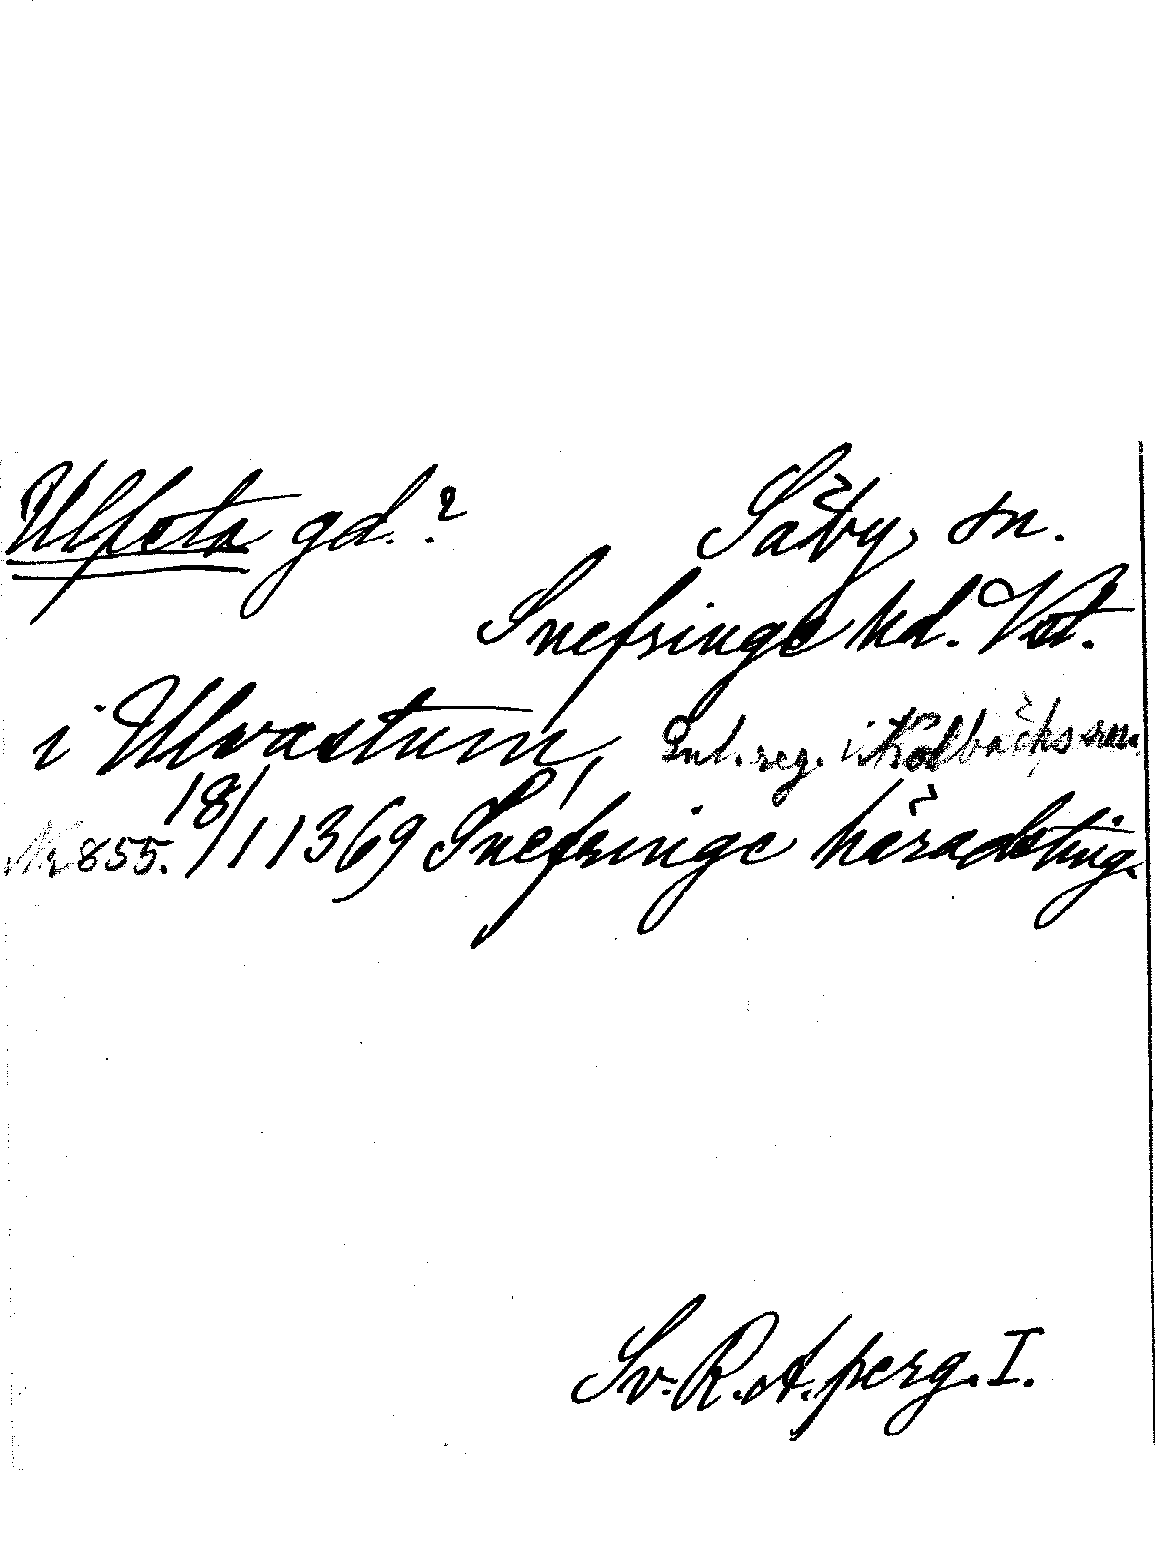 Ulfsta gd.? Säby, sn.
Snefringe hd. Vst.
i Ulvastum, Enl. reg. i Kolbäcks sn.
Nr 855. 18/1 1369 Snefringe häradsting.
Sv. R. A. perg. I.